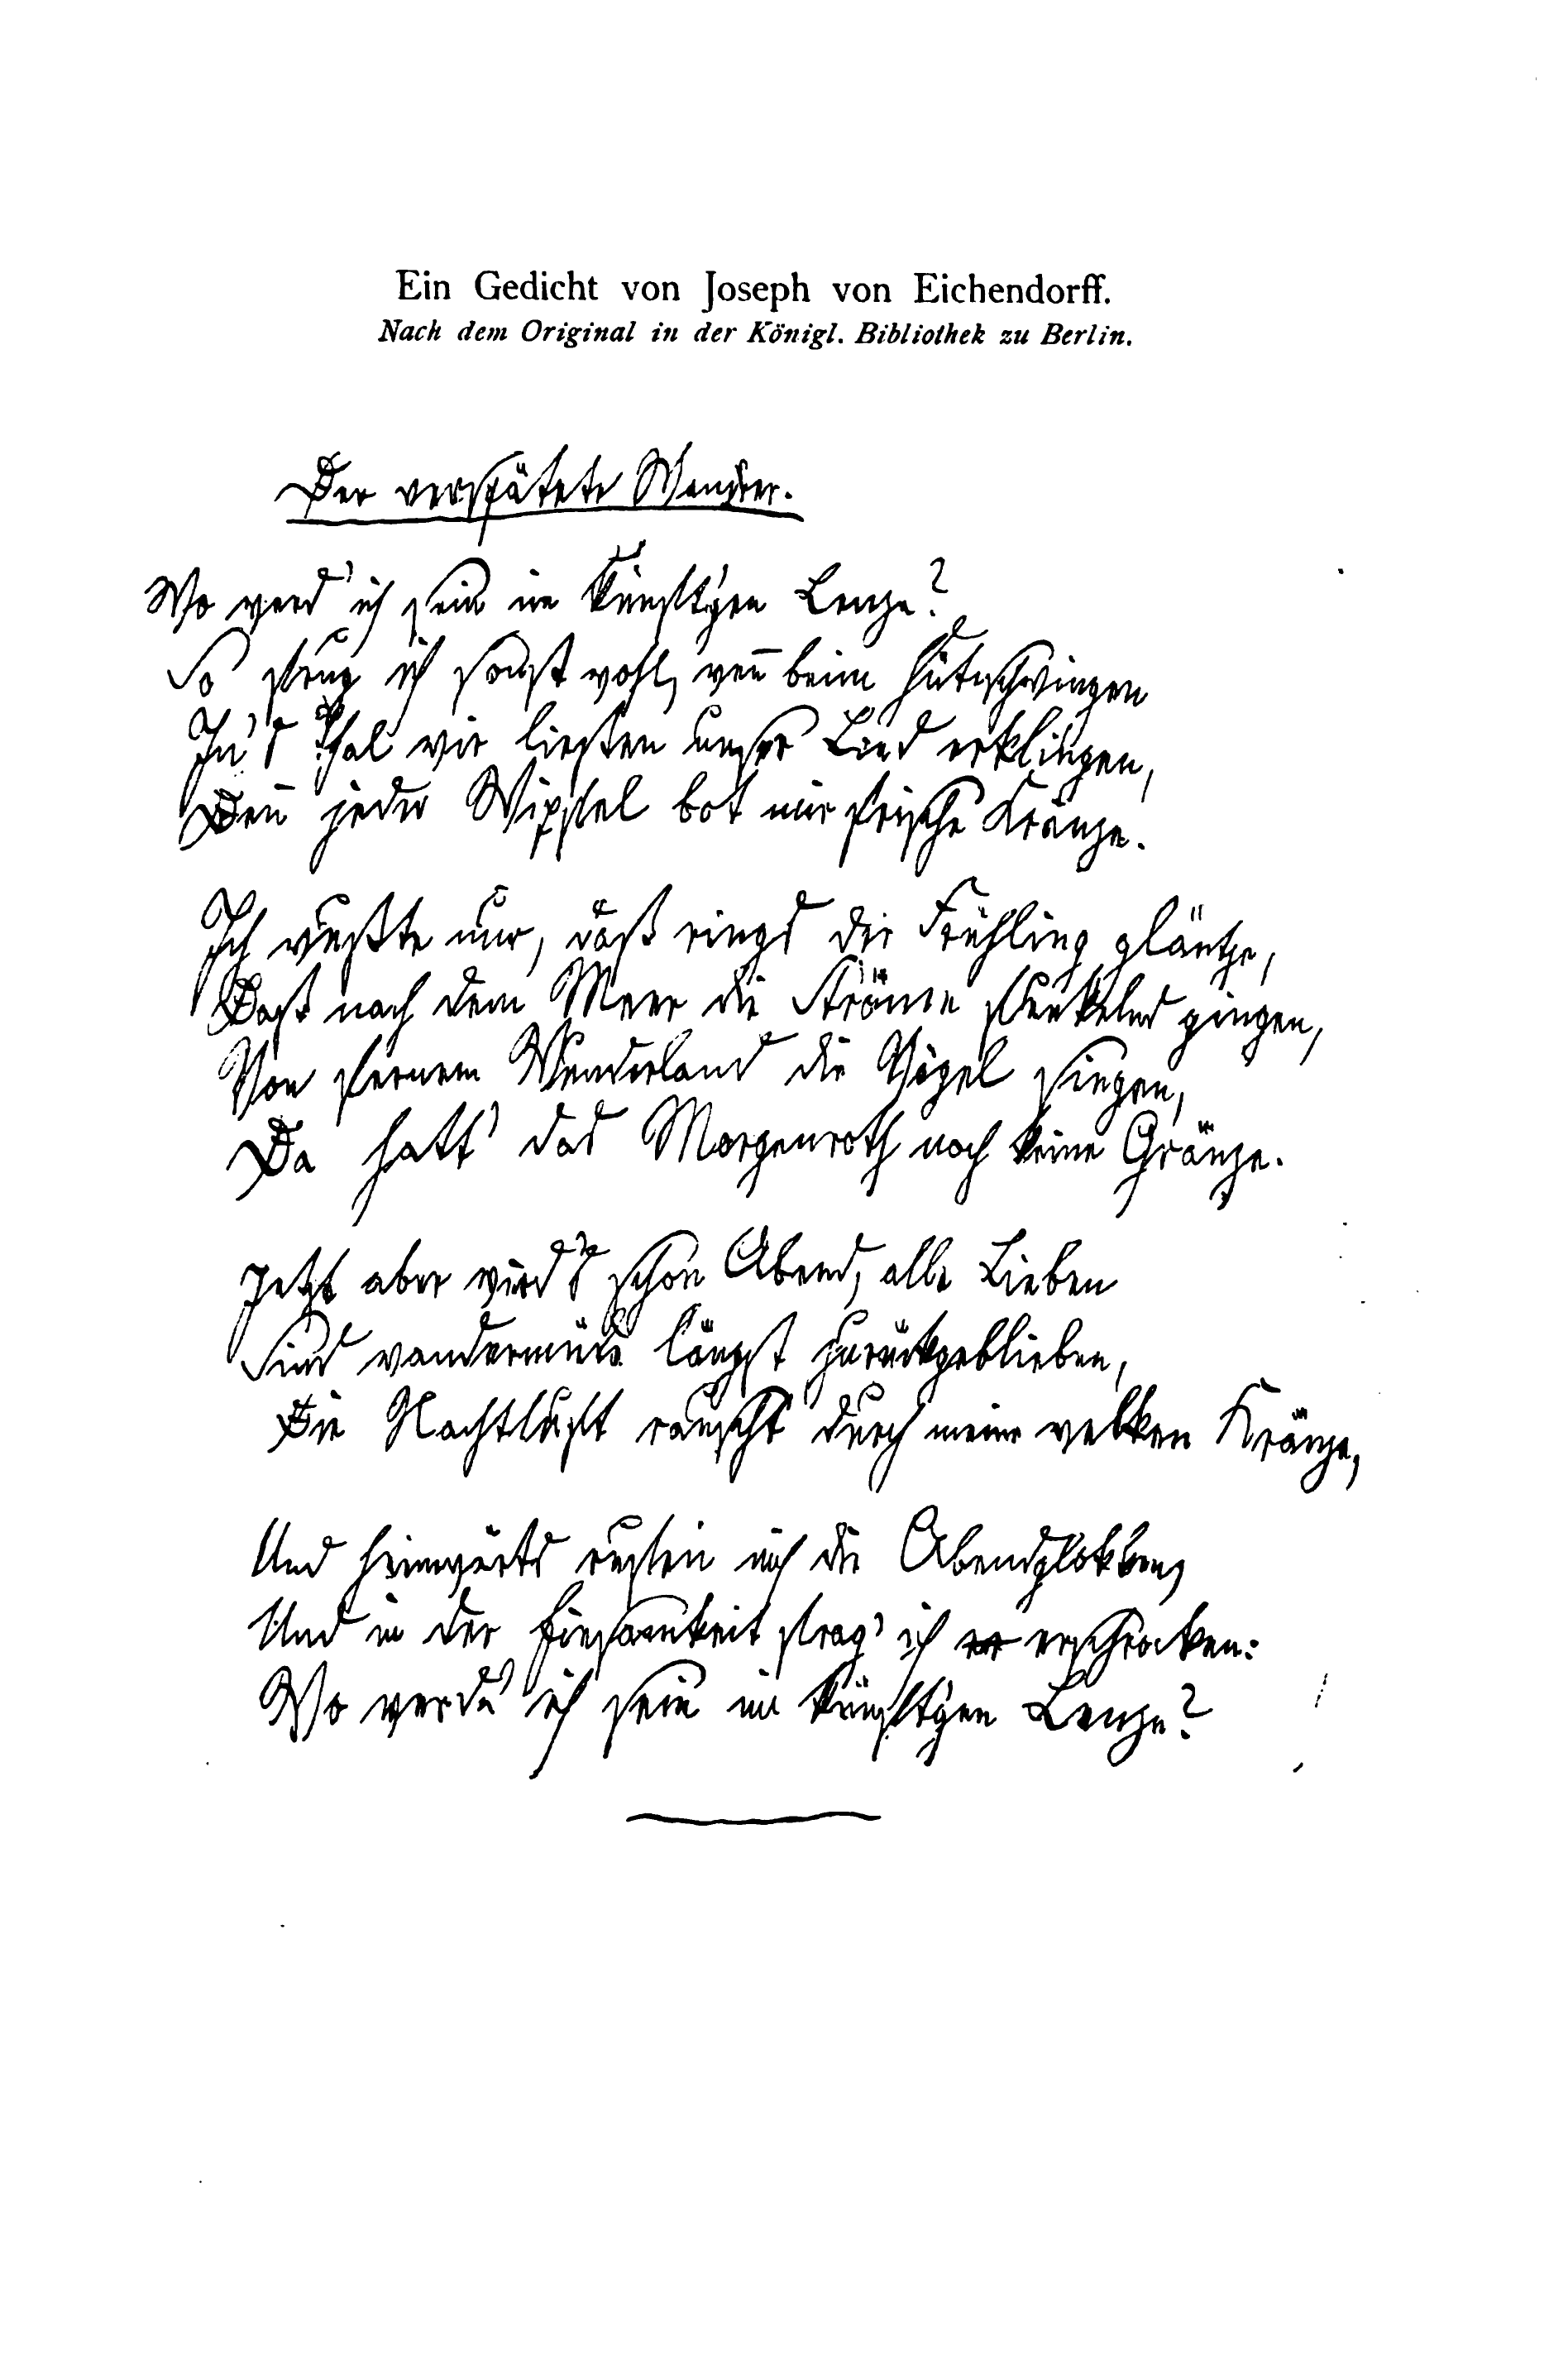 Ein Gedicht von Joseph von Eichendorff.
Nach dem Original in der Königl. Bibliothek zu Berlin.
Der verspätete Wandrer.
Wo werd' ich sein im künft'gen Lenze?
So frug ich sonst wohl, wen̅ beim Hüteschwingen
In's Thal wir ließen unser Lied erklingen,
Den̅ jeder Wipfel bot mir frische Kränze.
Ich wußte nur, daß rings der Frühling glänze,
Daß nach dem Meer die Ströme funkelnd gingen,
Von fernem Wunderland die Vögel singen,
Da hatt' das Morgenroth noch keine Gränze.
Jetzt aber wird's schon Abend, alle Lieben
Sind wandermüde längst zurückgeblieben,
Die Nachtluft rauscht durch meine welken Kränze,
Und heimwärts rufen mich die Abendglokken,
Und in der Einsamkeit frag' ich erschrocken:
Wo werde ich sein im künft'gen Lenze?